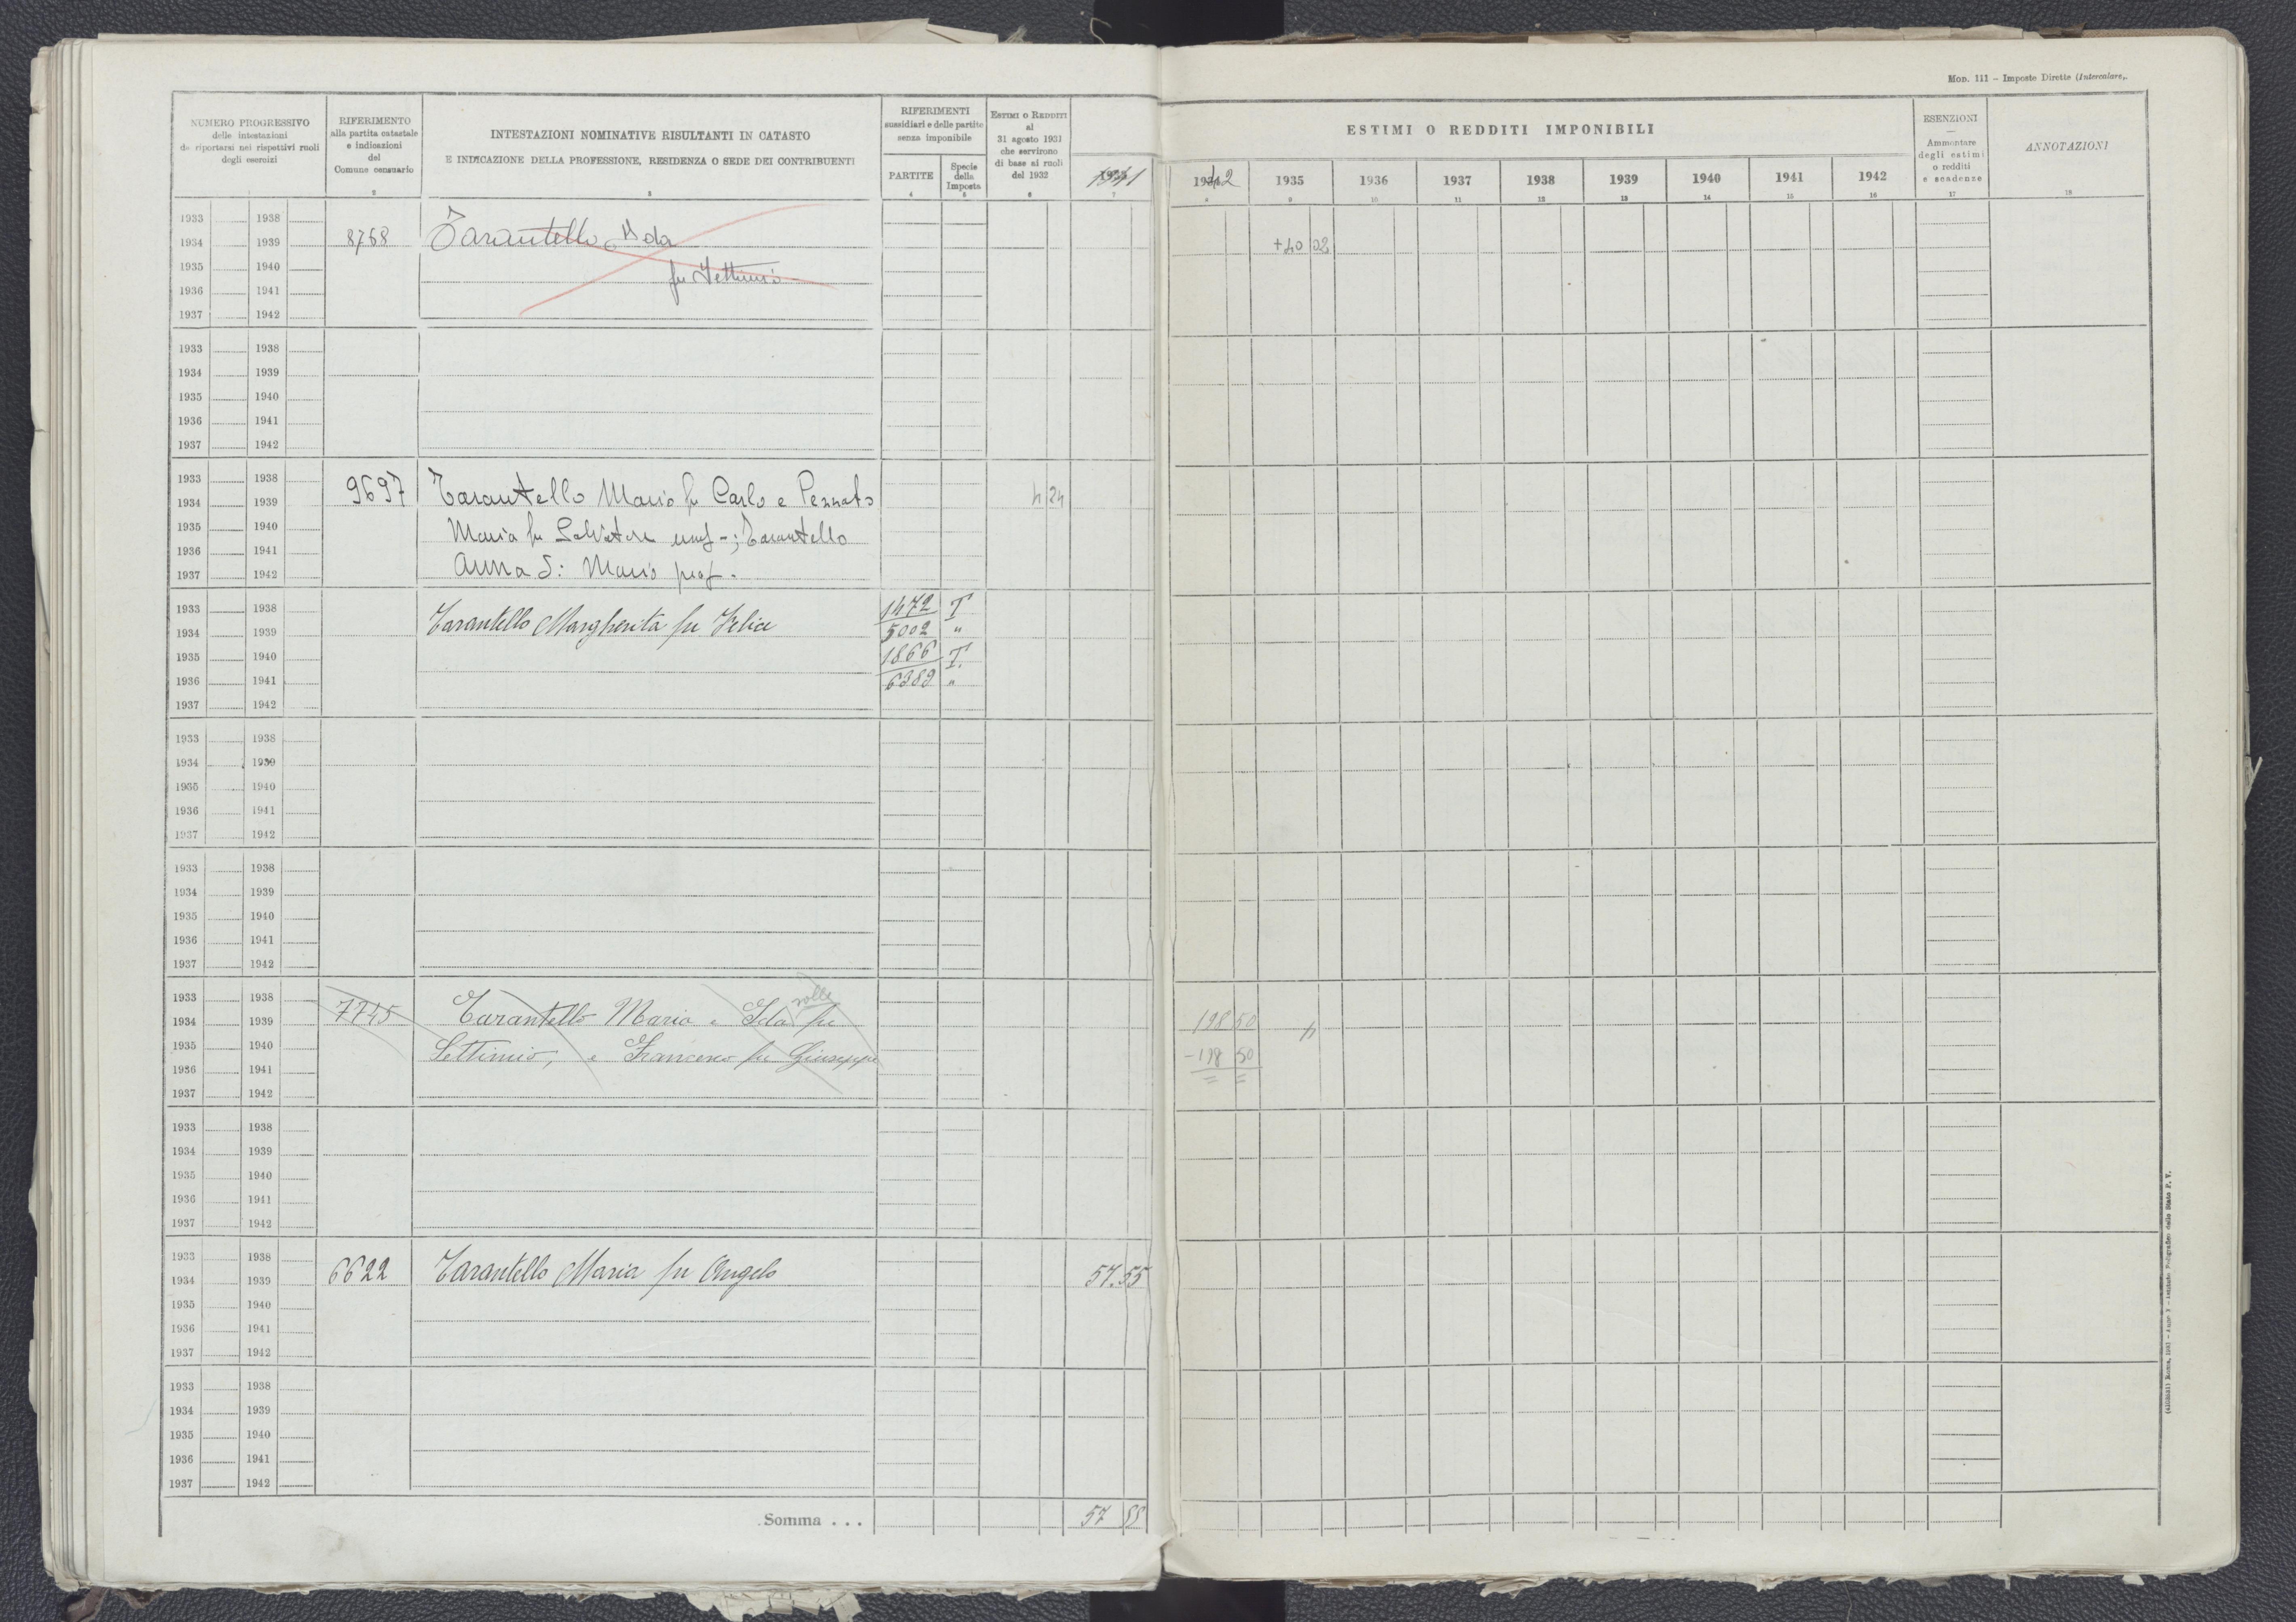 Mod. 111 – Imposte Dirette (Intercalare).
NUMERO PROGRESSIVO
delle intestazioni
da riportarsi nei rispettivi ruoli
degli esercizi
1
RIFERIMENTO
alla partita catastale
e indicazioni
del
Comune censuario
2
INTESTAZIONI NOMINATIVE RISULTANTI IN CATASTO
E INDICAZIONE DELLA PROFESSIONE, RESIDENZA O SEDE DEI CONTRIBUENTI
3
RIFERIMENTI
sussidiari e delle partite
senza imponibile
PARTITE
4
Specie
della
Imposta
5
ESTIMI O REDDITI
al
31 agosto 1931
che servirono
di base ai ruoli
del 1932
6
1941
7
ESTIMI O REDDITI IMPONIBILI
1942 1935 1936 1937 1938 1939 1940 1941 1942
8 9 10 11 12 13 14 15 16
ESENZIONI
—
Ammontare
degli estimi
o redditi
e scadenze
17
ANNOTAZIONI
18
1933 1938
1934 1939 8768 Tarantello Ida +40 02
1935 1940 fu Settimio
1936 1941
1937 1942
1933 1938
1934 1939
1935 1940
1936 1941
1937 1942
1933 1938
1934 1939 9697 Tarantello Mario fu Carlo e Pennato 4 24
1935 1940 Maria fu Salvatore usuf -; Tarantello
1936 1941
1937 1942 Anna di Mario prop.
1933 1938 1472 T
1934 1939 Tarantello Margherita fu Felice 5002 "
1935 1940 1866 T.
1936 1941 6389 "
1937 1942
1933 1938
1934 1939
1935 1940
1936 1941
1937 1942
1933 1938
1934 1939
1935 1940
1936 1941
1937 1942
1933 1938
1934 1939 7745 Tarantello Maria e Ida fu 198 50
1935 1940 Settimio, e Francesco fu Giuseppe -198 50
1936 1941 = =
1937 1942
1933 1938
1934 1939
1935 1940
1936 1941
1937 1942
1933 1938
1934 1939 6622 Tarantello Maria fu Angelo 57.55
1935 1940
1936 1941
1937 1942
1933 1938
1934 1939
1935 1940
1936 1941
1937 1942
Somma . . . 57 55